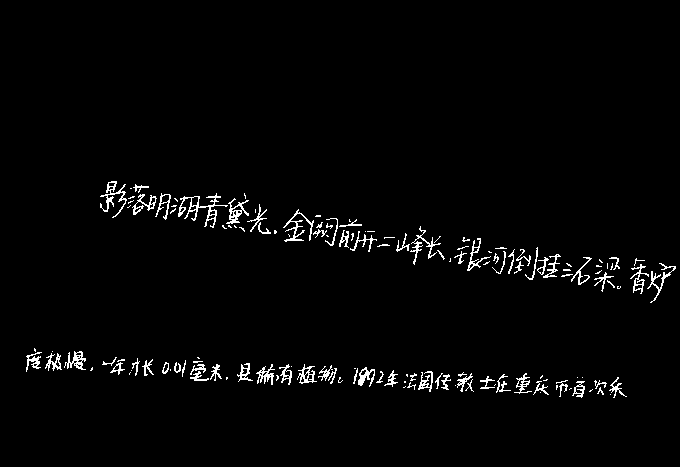 影落明湖青黛光.金阙前开二峰长,银河倒挂三石梁。香炉
度极慢,一年才长0.01厘米,是稀有植物。1892年法国传教士在重庆市首次采